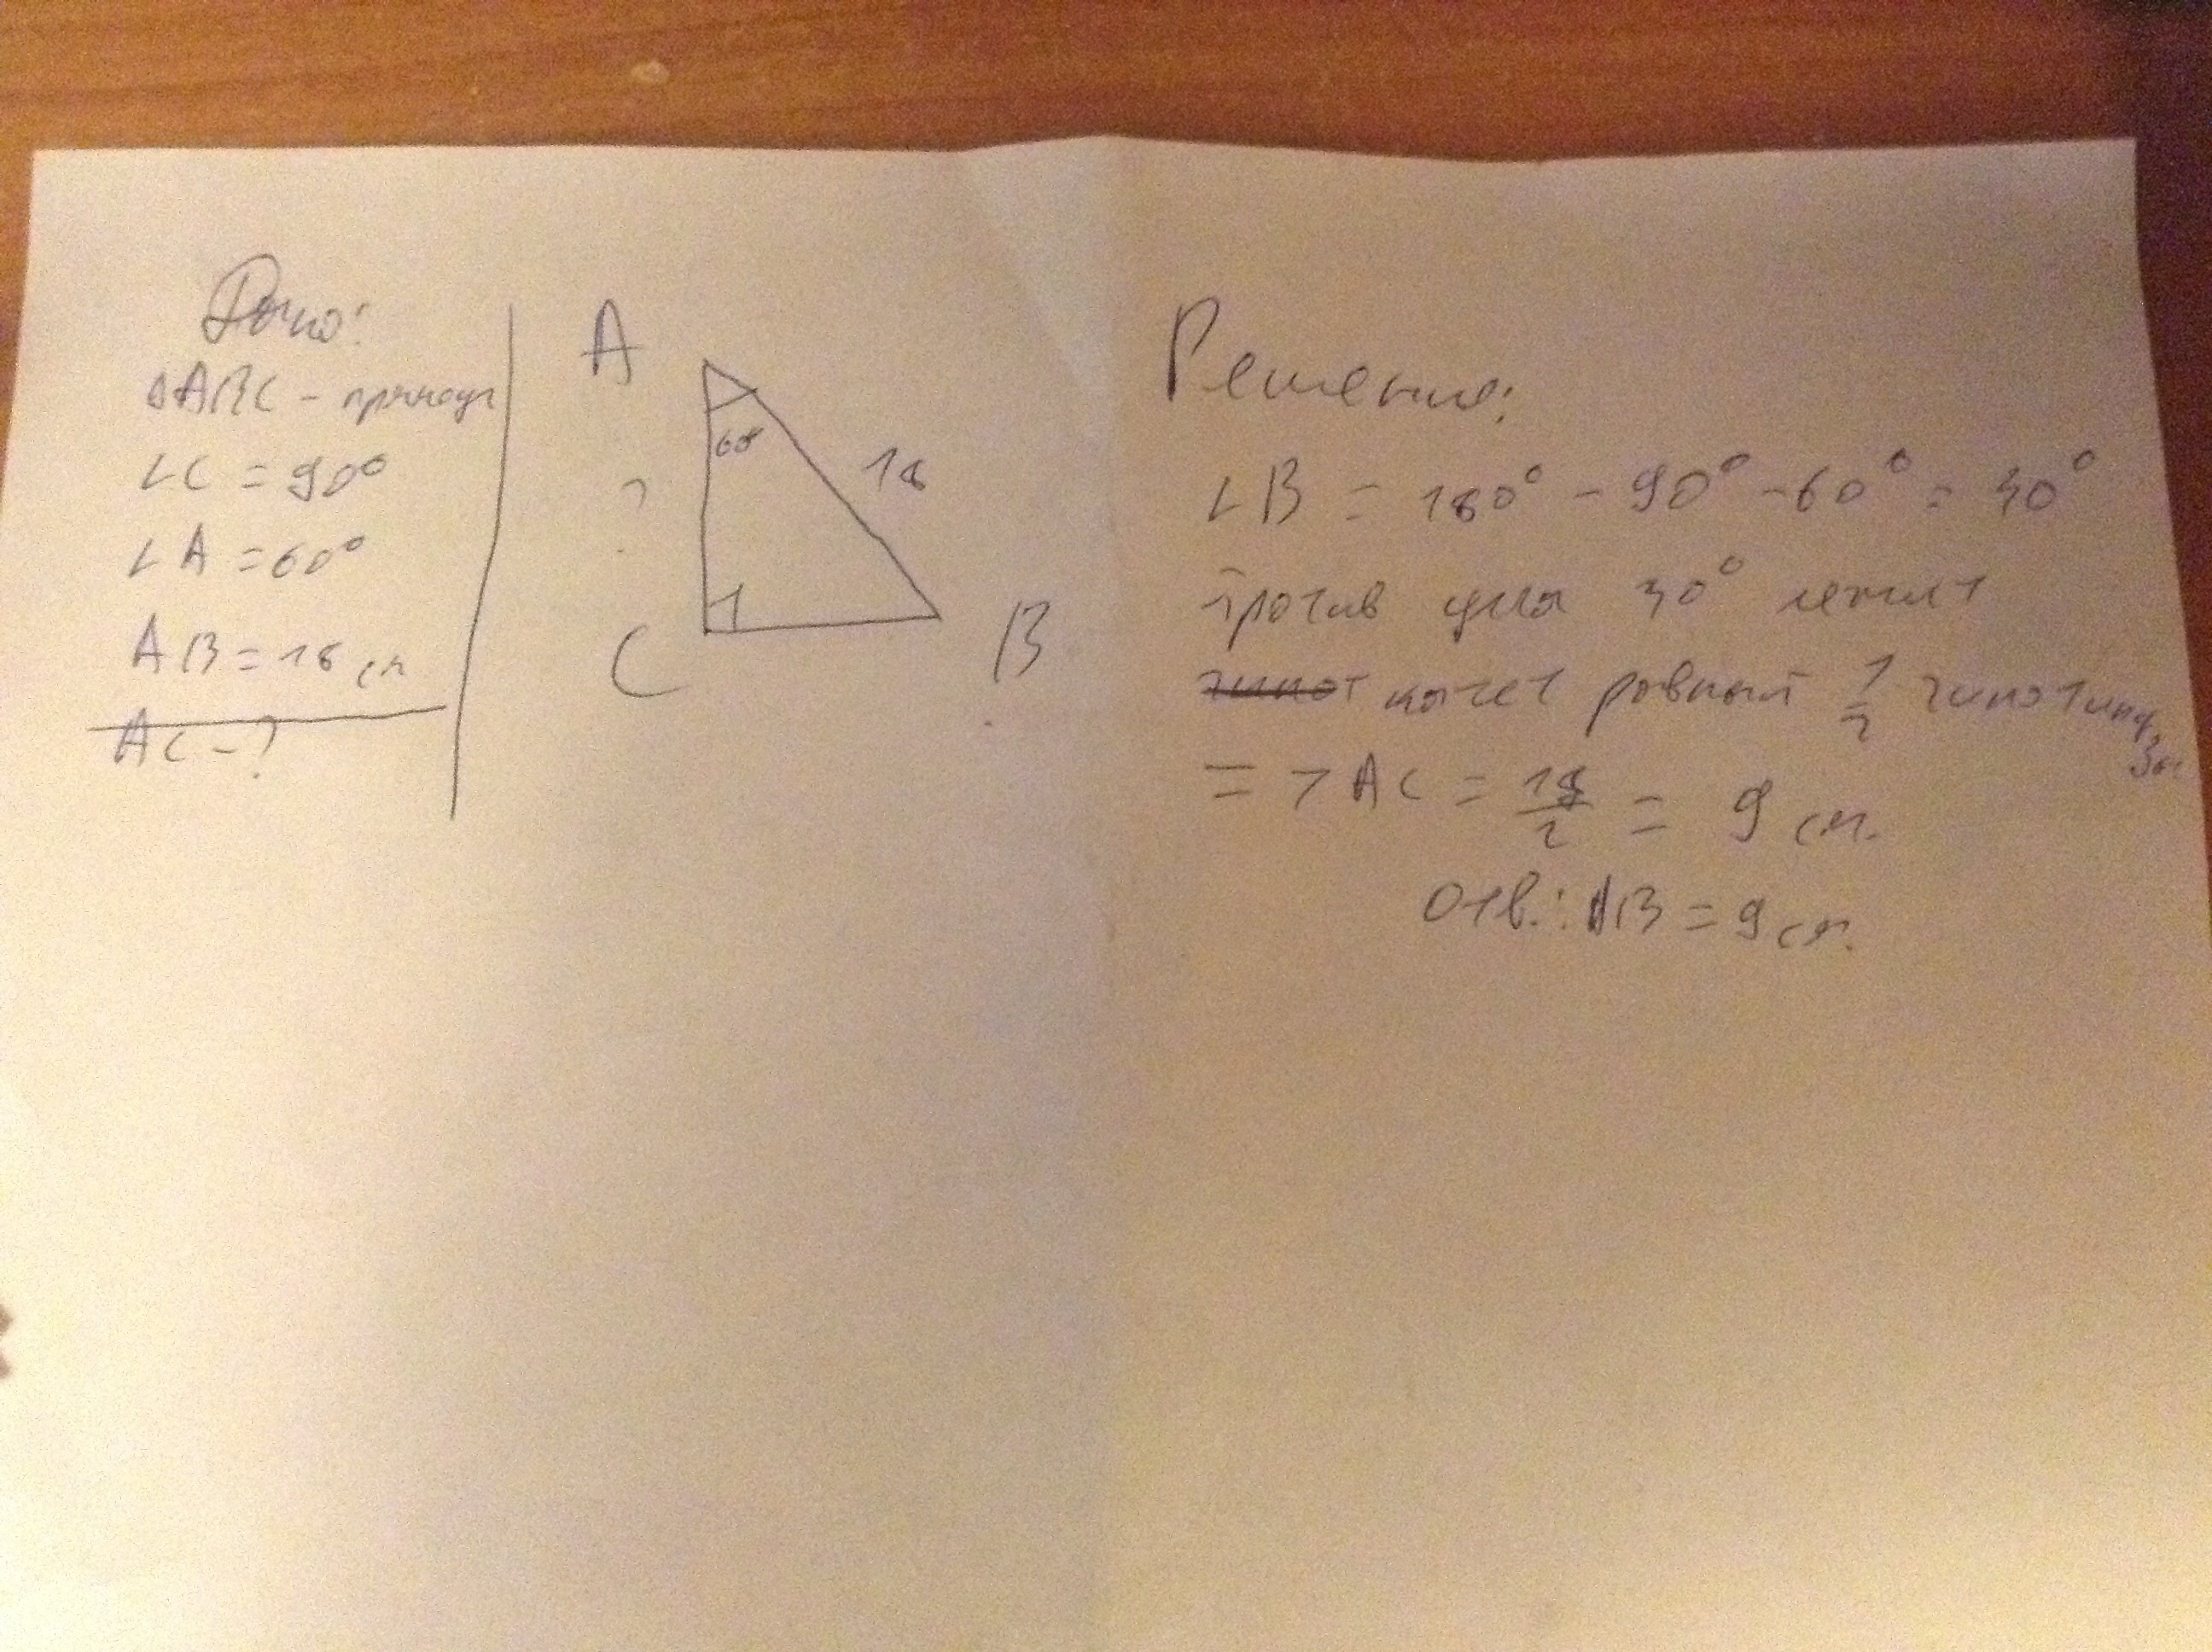 Дано:
△ABC - прямоуг
∠C = 90°
∠A = 60°
AB = 18 см
AC - ?
A
60°
18
?
C
B
Решение:
∠B = 180° - 90° - 60° = 30°
Против угла 30° лежит
катет равный 1/2 гипотинузы
=> AC = 18/2 = 9 см.
Отв.: AB = 9 см.